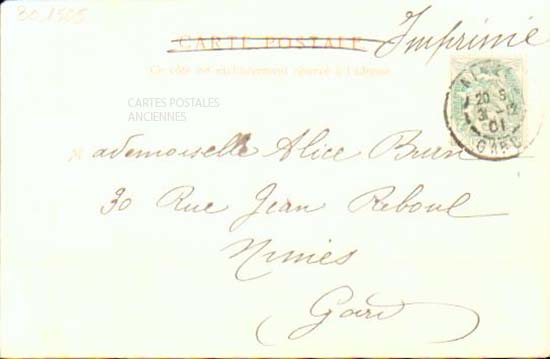 30.1505
CARTE POSTALE
Imprimé
Ce côté est exclusivement réservé à l'adresse
CARTES POSTALES
ANCIENNES
20 5
31 - 12
01
GARD
Mademoiselle Alice Brun
30 Rue Jean Reboul
Nimes
Gard